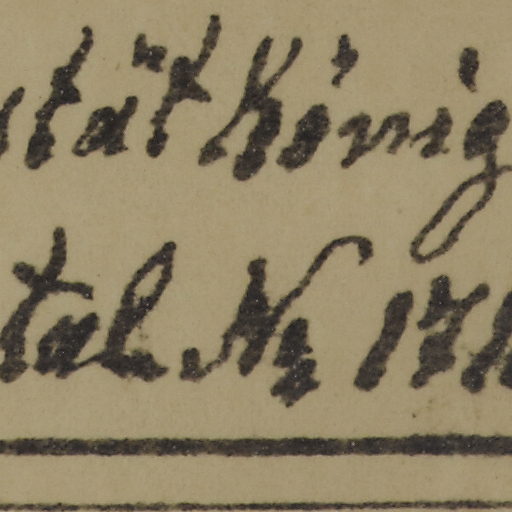 stät König
tal. No 171